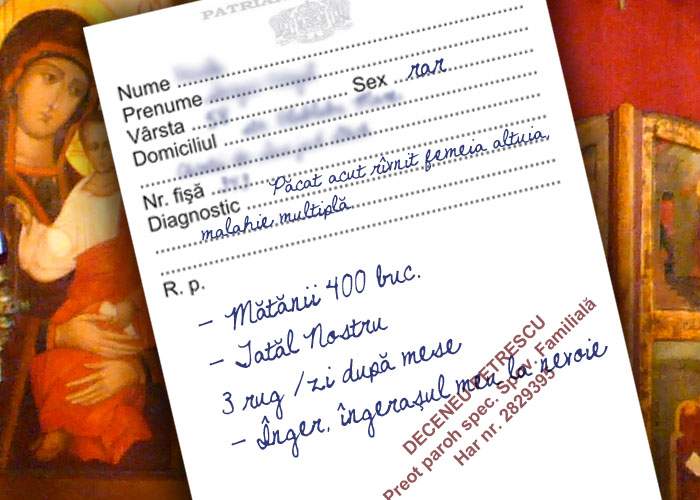 Nume
Prenume
Vârsta Sex rar
Domiciliul
Nr. fişă
Diagnostic Păcat acut rîvnit femeia altuia,
malahie multiplă
R. p.
– Mătănii 400 buc.
– Tatăl Nostru
3 rug /zi după mese
– Înger, îngeraşul meu la nevoie
DECENEU PETRESCU
Preot paroh spec. Spov. Familială
Har nr. 2829395